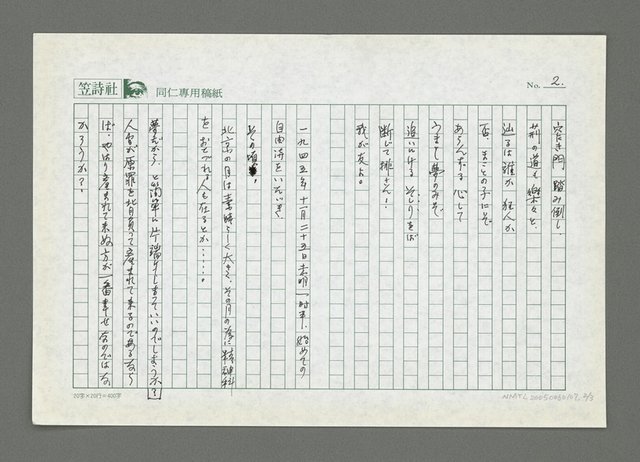 笠詩社
同仁専用稿紙
No. 2.
門 踏み倒し、
荊の道も楽々と、
辿るは誰か 狂人か
否、まことの子にぞ
あらんずる心して
うまし夢のみぞ
追いいける そしりをば
断じて排さん！
我が友よ。
一九四五年十一月二十五日未明一時半、始めての
自由詩をいたいき
その頃、
北京の月は素晴らしく大きく、その月の為に精神科
をおとづれる人も在るとか……。
夢だから、と簡単に片端りしまていいのでしょうか？
人霊が原罪を背負って産まれて来るのであるなら
ば、やはり産まれて来ぬ方が一番幸せなのではな
かろうか？！
20字×20行=400字
NMTL 20050060107, 2/3